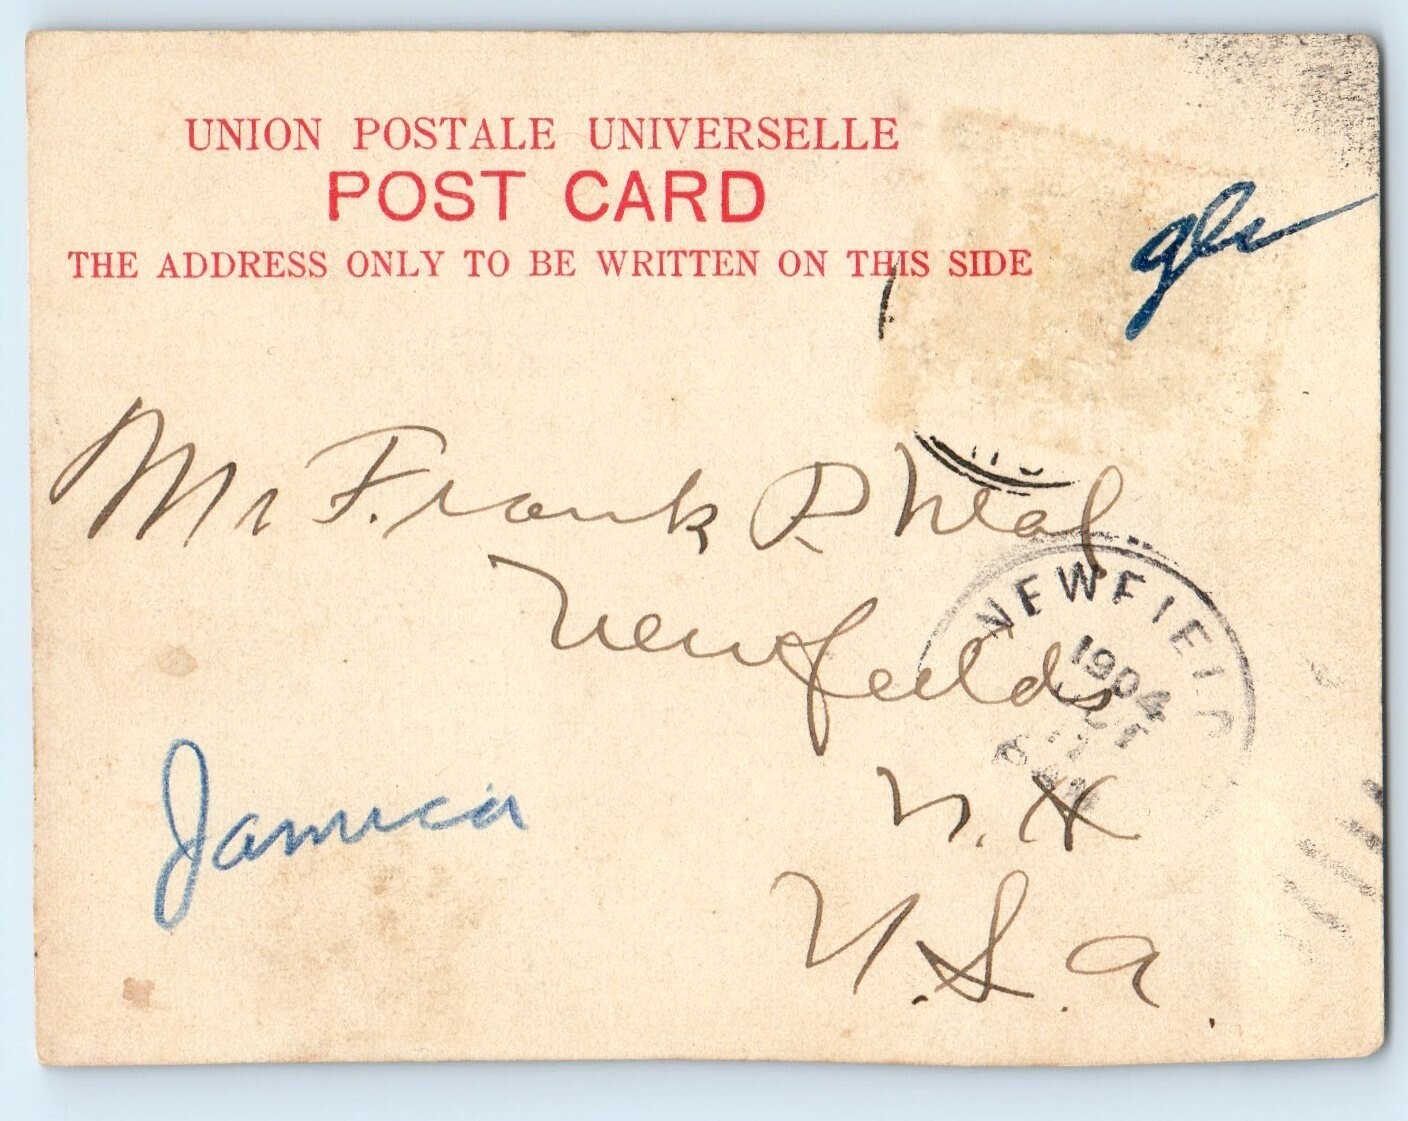 UNION POSTALE UNIVERSELLE
POST CARD
THE ADDRESS ONLY TO BE WRITTEN ON THIS SIDE
Mr F. Frank P. Neal
Newfields
N. H
U.S.A.
Jamica
NEWFIELD
1904
OCT